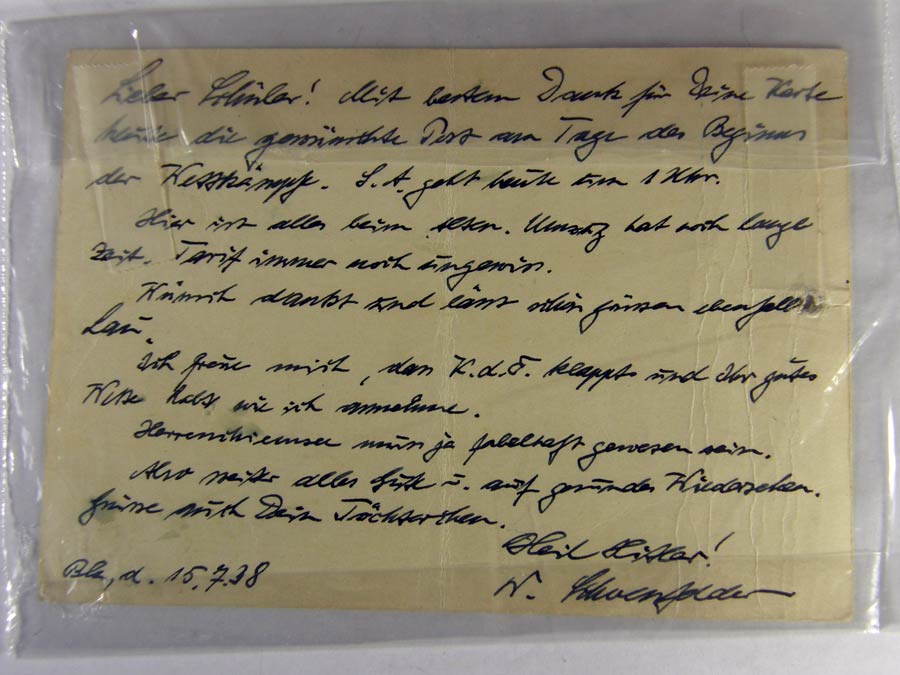 Lieber Schüler! Mit bestem Dank für Deine Karte
heute die gewünschte Post am Tage des Beginns
der Wettkämpfe. S.A. geht heute um 1 Uhr.
Hier ist alles beim alten. Umzug hat noch lange
Zeit. Tarif immer noch ungewiss.
dankt und lässt schön grüssen ebenfalls
Lau.
Ich freue mich, dass K.d.F. klappt und Ihr gutes
habt wie ich annehme.
Herrenchiemsee muss ja fabelhaft gewesen sein.
Also weiter alles Gute u. auf gesundes Wiedersehen.
Grüsse auch Dein Töchterchen.
Heil Hitler!
Bln, d. 15.7.38
W. Schoenfelder